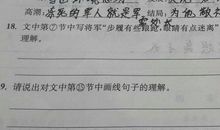 高潮:杀死的军人就是军 结局:为他
18. 文中第⑦节中写将军“步履有些踉跄,眼睛有点迷离”
理解。
9. 请说出对文中第⑮节中画线句子的理解。